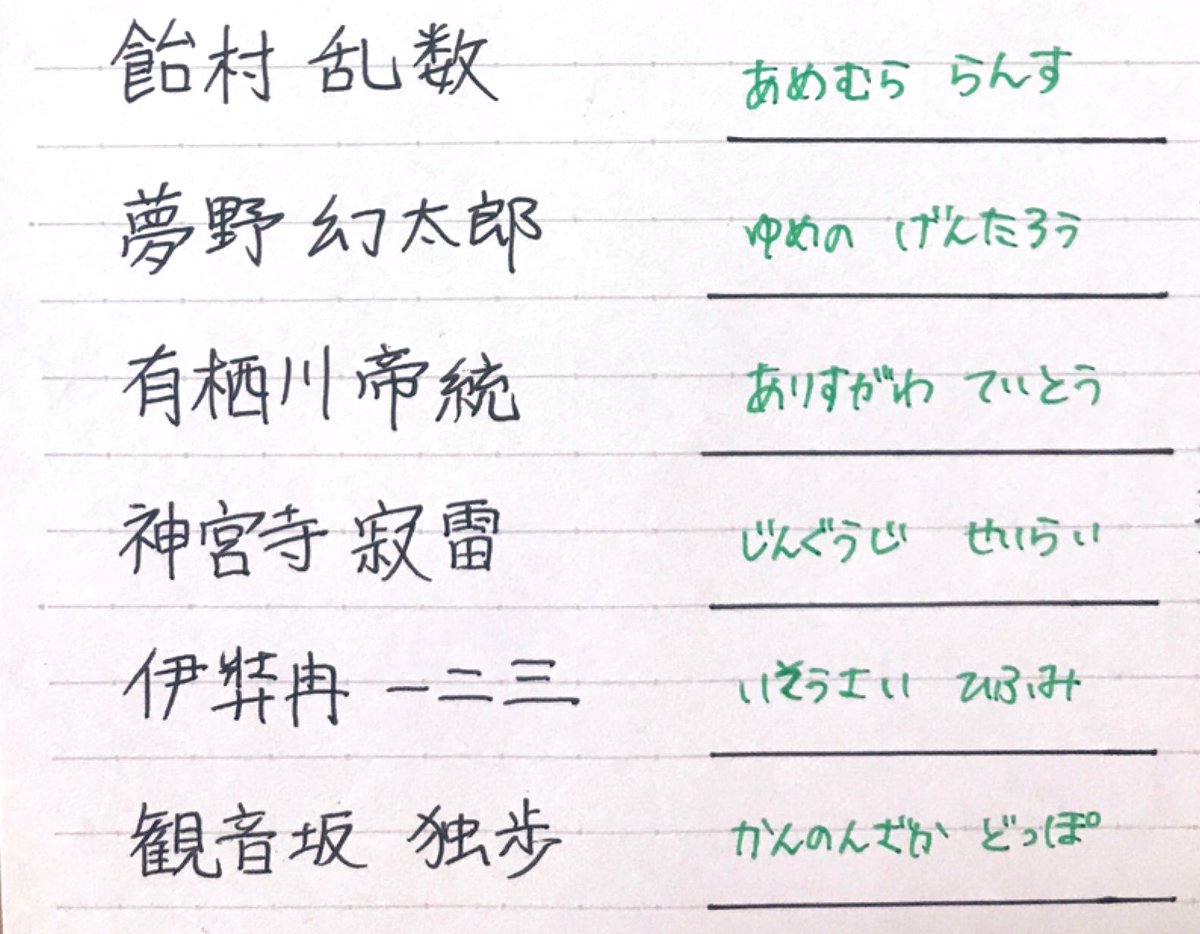 飴村 乱数 あめむら らんす
夢野 幻太郎 ゆめの げんたろう
有栖川 帝統 ありすがわ ていとう
神宮寺 寂雷 じんぐうじ せいらい
伊弉冉 一二三 いそうさい ひふみ
観音坂 独歩 かんのんざか どっぽ